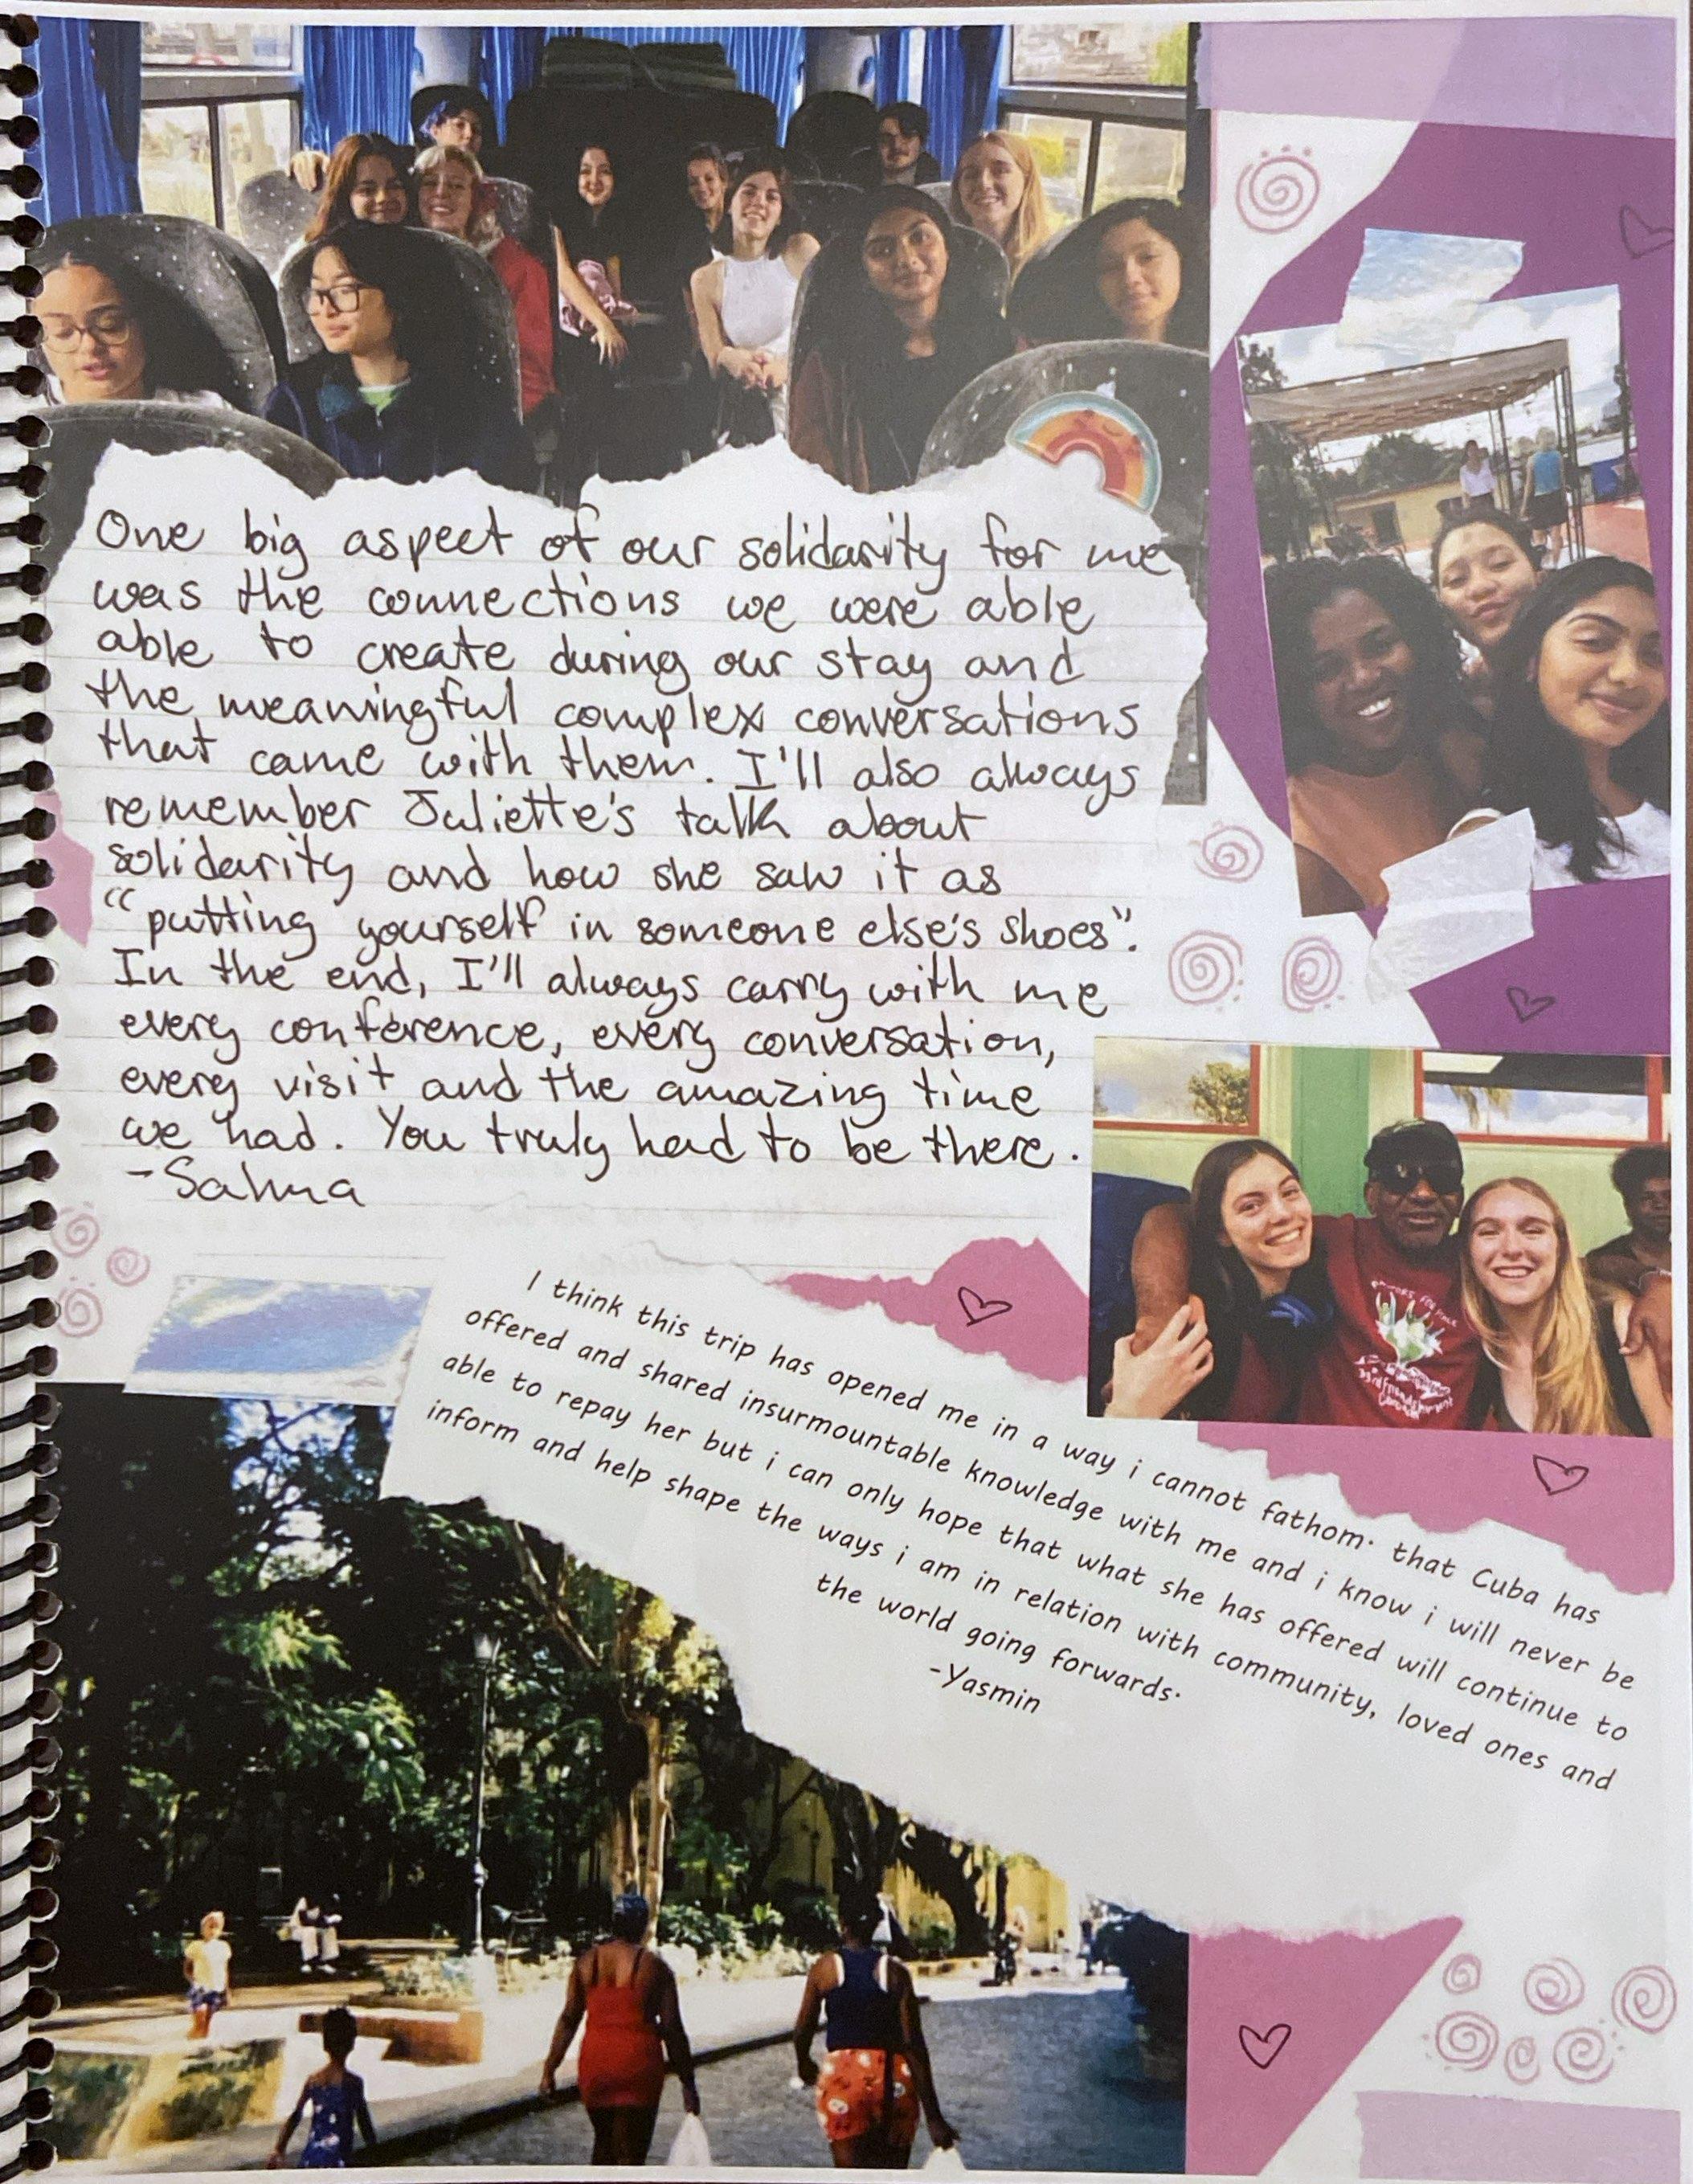 One big aspect of our solidarity for me
was the connections we were able
able to create during our stay and
the meaningful complex conversations
that came with them. I'll also always
remember Juliette's talk about
solidarity and how she saw it as
“putting yourself in someone else's shoes”.
In the end, I'll always carry with me
every conference, every conversation,
every visit and the amazing time
we had. You truly had to be there.
-Salma
I think this trip has opened me in a way i cannot fathom. that Cuba has
offered and shared insurmountable knowledge with me and i know i will never be
able to repay her but i can only hope that what she has offered will continue to
inform and help shape the ways i am in relation with community, loved ones and
the world going forwards.
-Yasmin